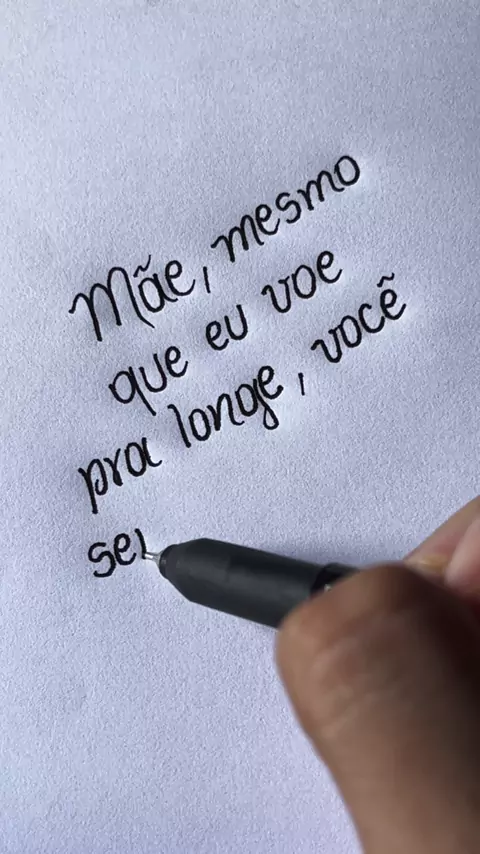 Mãe, mesmo
que eu voe
pra longe, você
se